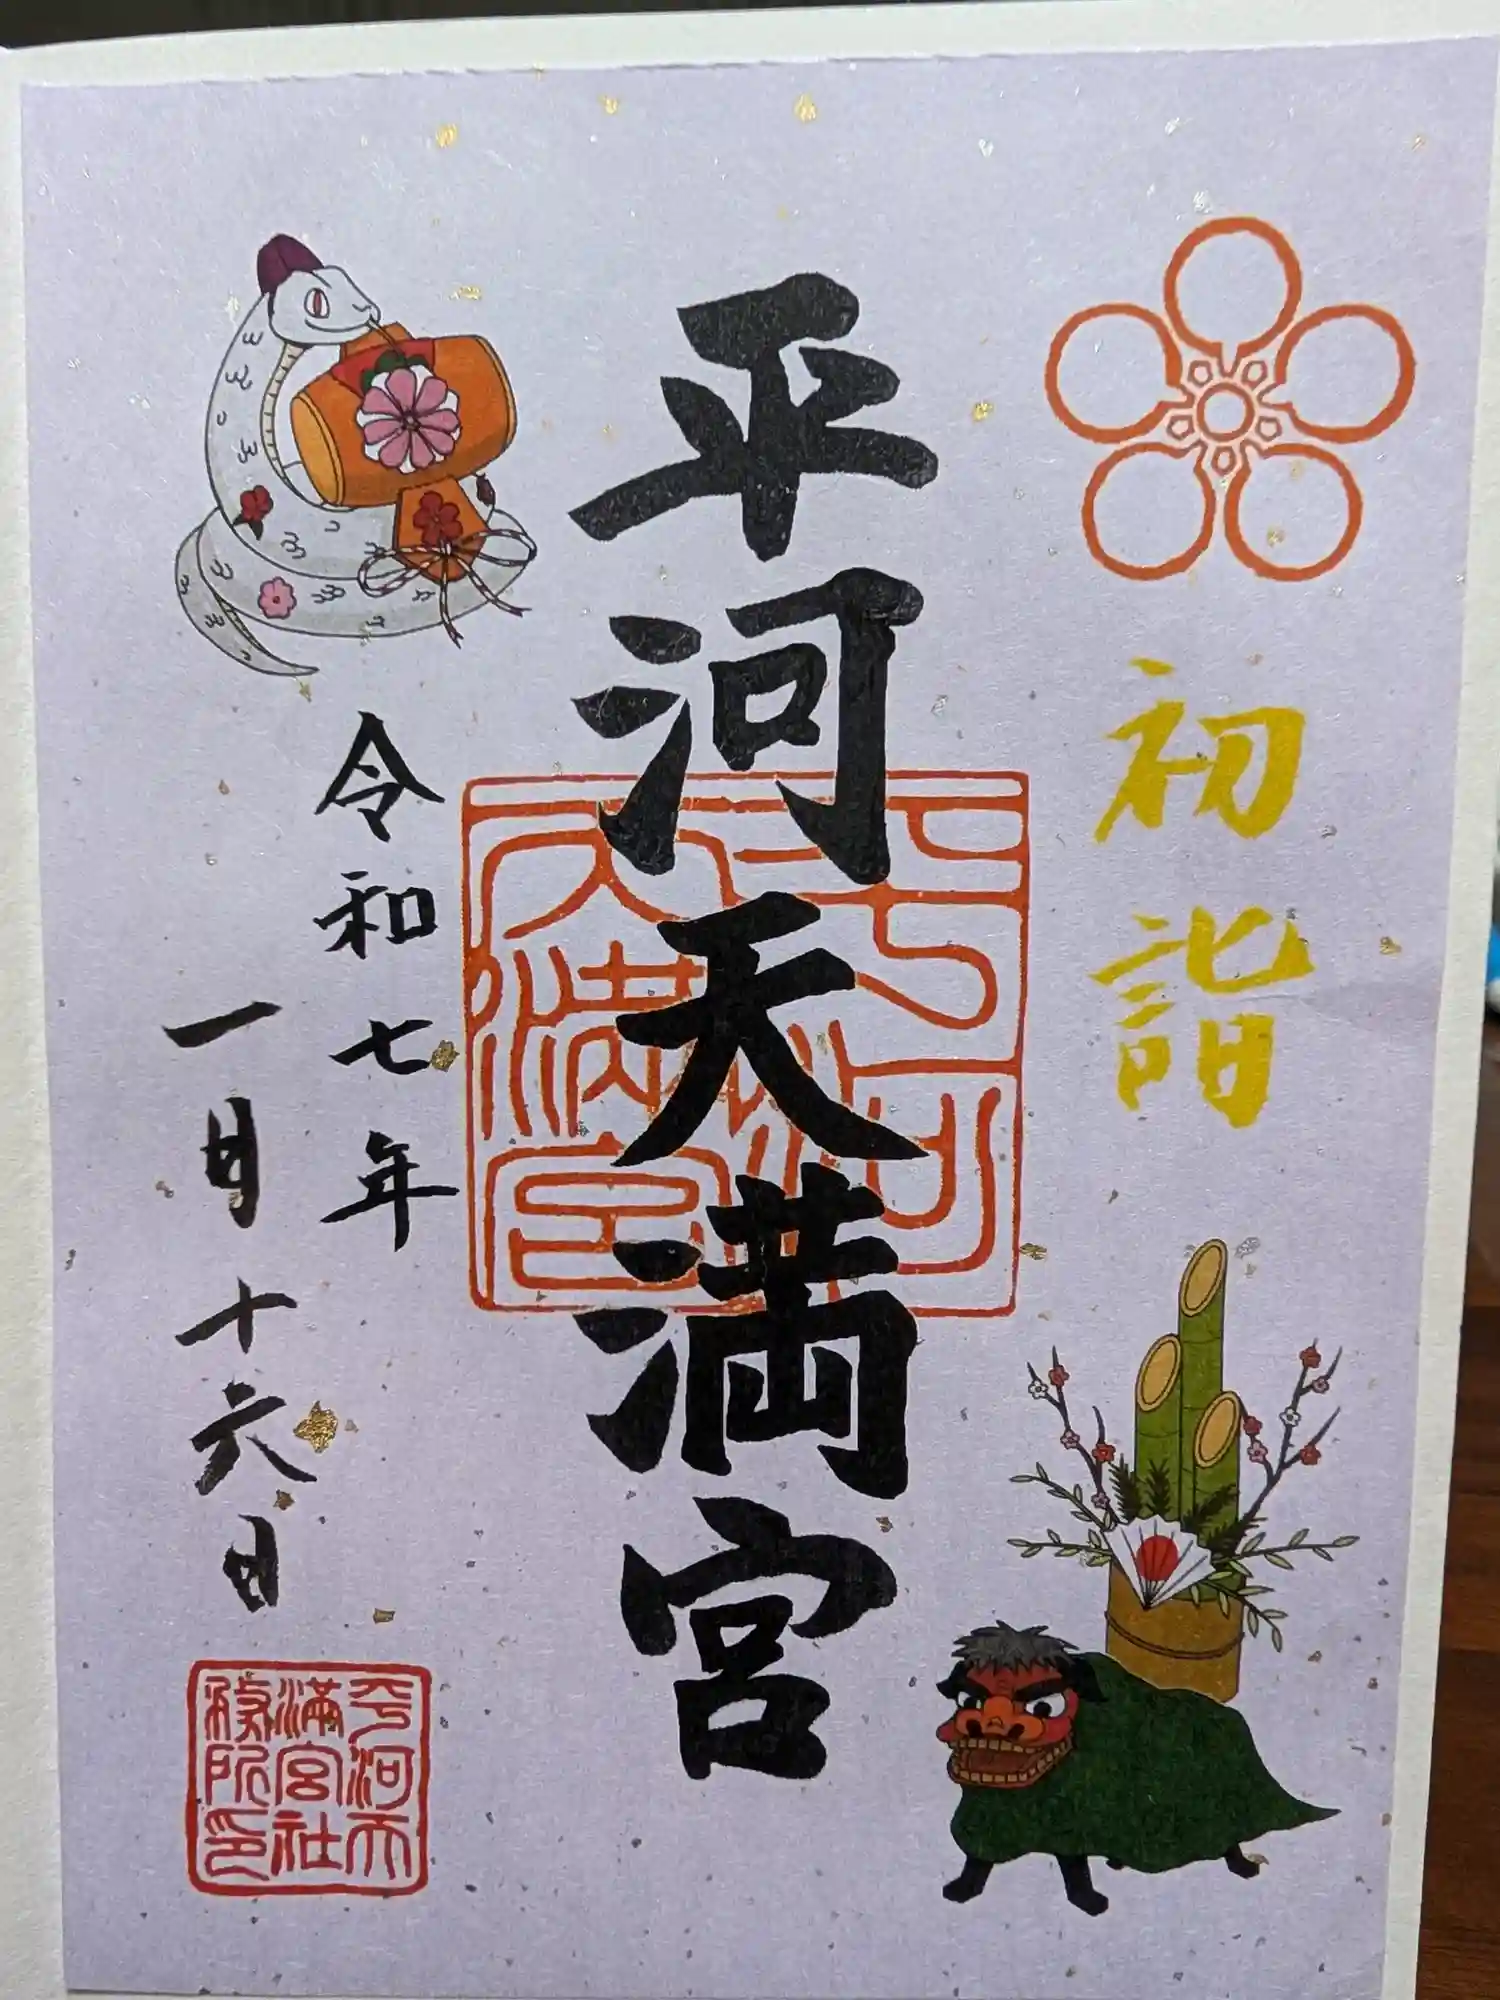 初詣
平河天満宮
令和七年
一月十六日
平河
天満宮
平河天
満宮社
務所印